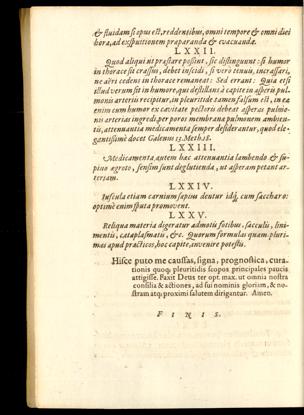 & fluidam si opus est, reddentibus, omni tempore & omni diei
hora, ad exspuitionem præparanda & evacuanda.
LXXII.
Quod aliqui ut præstare possint, sic distinguunt: si humor
in thorace sit crassus, debet incidi, si vero tenuis, incrassari,
ne acri cedens in thorace remaneat: Sed errant: Quia etsi
illud verum sit in humore, qui destillans à capite in asperis pul-
monis arterias recipitur, in pleuritide tamen falsum est, in ea
enim cum humor ex cavitate pectoris debeat asperas pulmo-
nis arterias ingredi per poros membranæ pulmonem ambien-
tis, attenuantia medicamenta semper desiderantur, quod ele-
gantissimè docet Galenus 13. Meth. 18.
LXXIII.
Medicamenta autem hæc attenuantia lambendo & su-
pino ægroto, sensim sunt deglutienda, ut asperam petant ar-
teriam.
LXXIV.
Iuscula etiam carnium sæpius dentur idq́;, cum saccharo:
optimè enim sputa promovent.
LXXV.
Reliqua materia digeratur admotis fotibus, sacculis, lini-
mentis, cataplasmatis, &c. Quorum formulas quam pluri-
mas apud practicos, hoc capite, invenire potestis.
Hisce puto me caussas, signa, prognostica, cura-
tionis quoq; pleuritidis scopos principales paucis
attigisse. Faxit Deus ter opt. max. ut omnia nostra
consilia & actiones, ad sui nominis gloriam, & no-
stram atq; proximi salutem dirigantur. Amen.
FINIS.